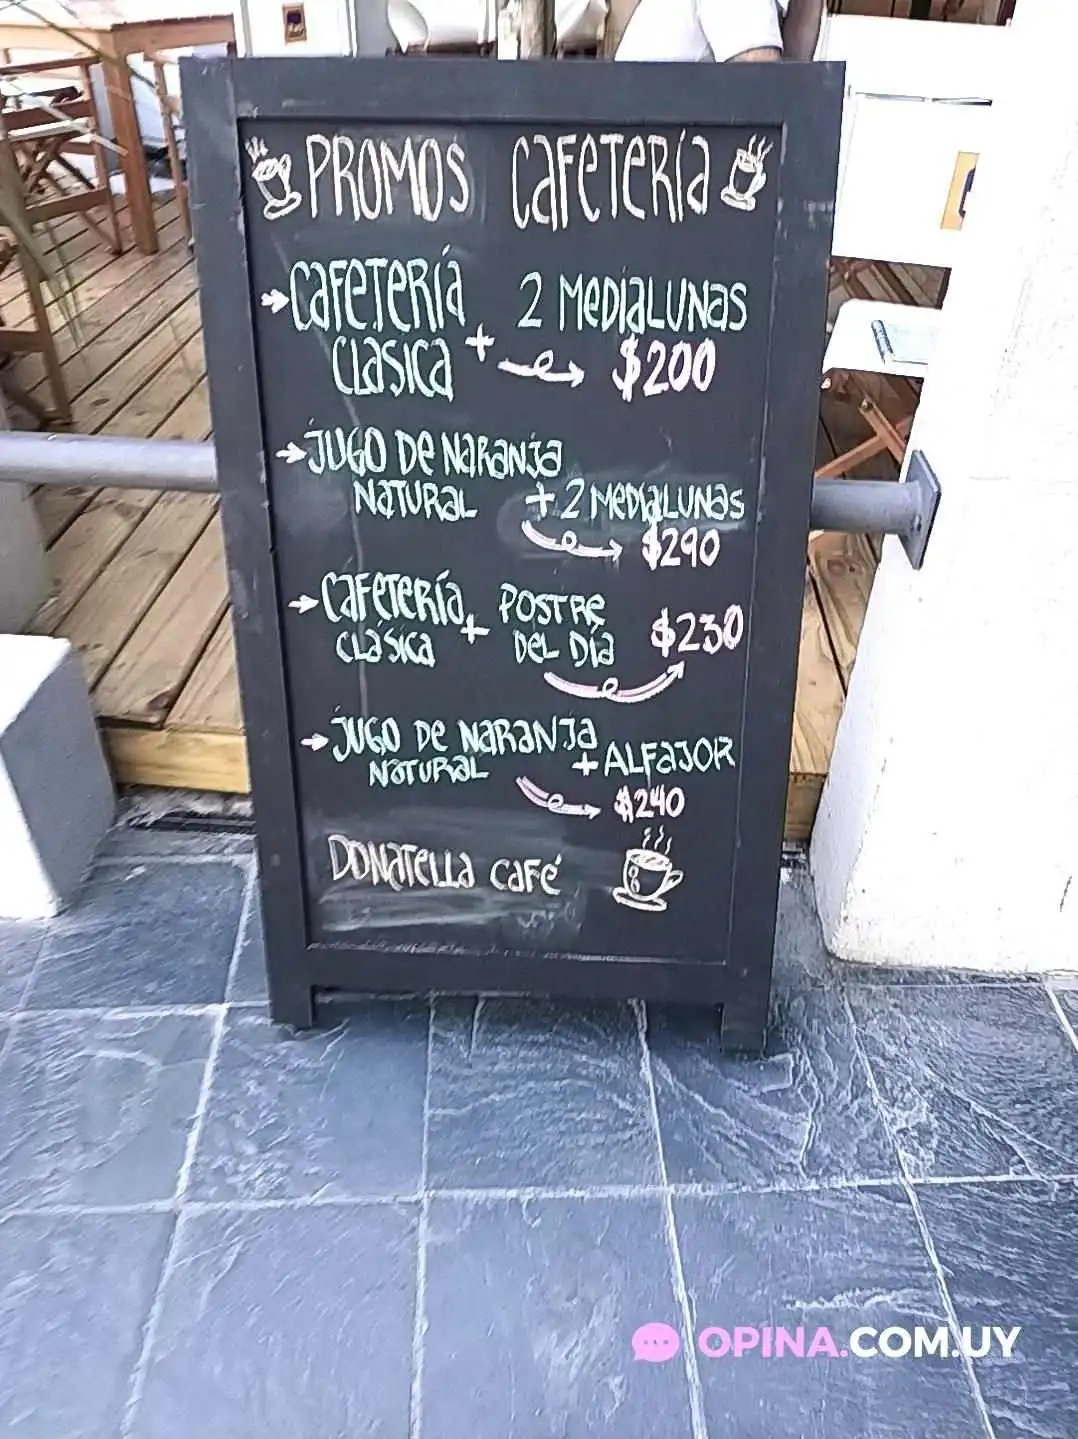 PROMOS CAFETERÍA
CAFETERÍA 2 MEDIALUNAS
CLASICA + $200
JUGO DE NARANJA
NATURAL + 2 MEDIALUNAS
$290
CAFETERÍA + POSTRE $230
CLÁSICA DEL DÍA
JUGO DE NARANJA + ALFAJOR
NATURAL
$240
DONATELLA CAFÉ
OPINA.COM.UY